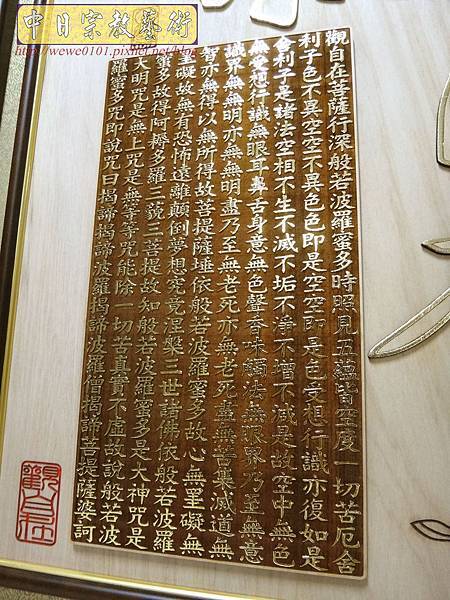 中日宗教藝術
http://wewe0101.pixnet.net/blog
觀自在菩薩行深般若波羅蜜多時照見五蘊皆空度一切苦厄舍
利子色不異空空不異色色即是空空即是色受想行識亦復如是
舍利子是諸法空相不生不滅不垢不淨不增不減是故空中無色
無受想行識無眼耳鼻舌身意無色聲香味觸法無眼界乃至無意
識界無無明亦無無明盡乃至無老死亦無老死盡無苦集滅道無
智亦無得以無所得故菩提薩埵依般若波羅蜜多故心無罣礙無
罣礙故無有恐怖遠離顛倒夢想究竟涅槃三世諸佛依般若波羅
蜜多故得阿耨多羅三藐三菩提故知般若波羅蜜多是大神咒是
大明咒是無上咒是無等等咒能除一切苦真實不虛故說般若波
羅蜜多咒即說咒曰揭諦揭諦波羅揭諦波羅僧揭諦菩提薩婆訶
觀自在